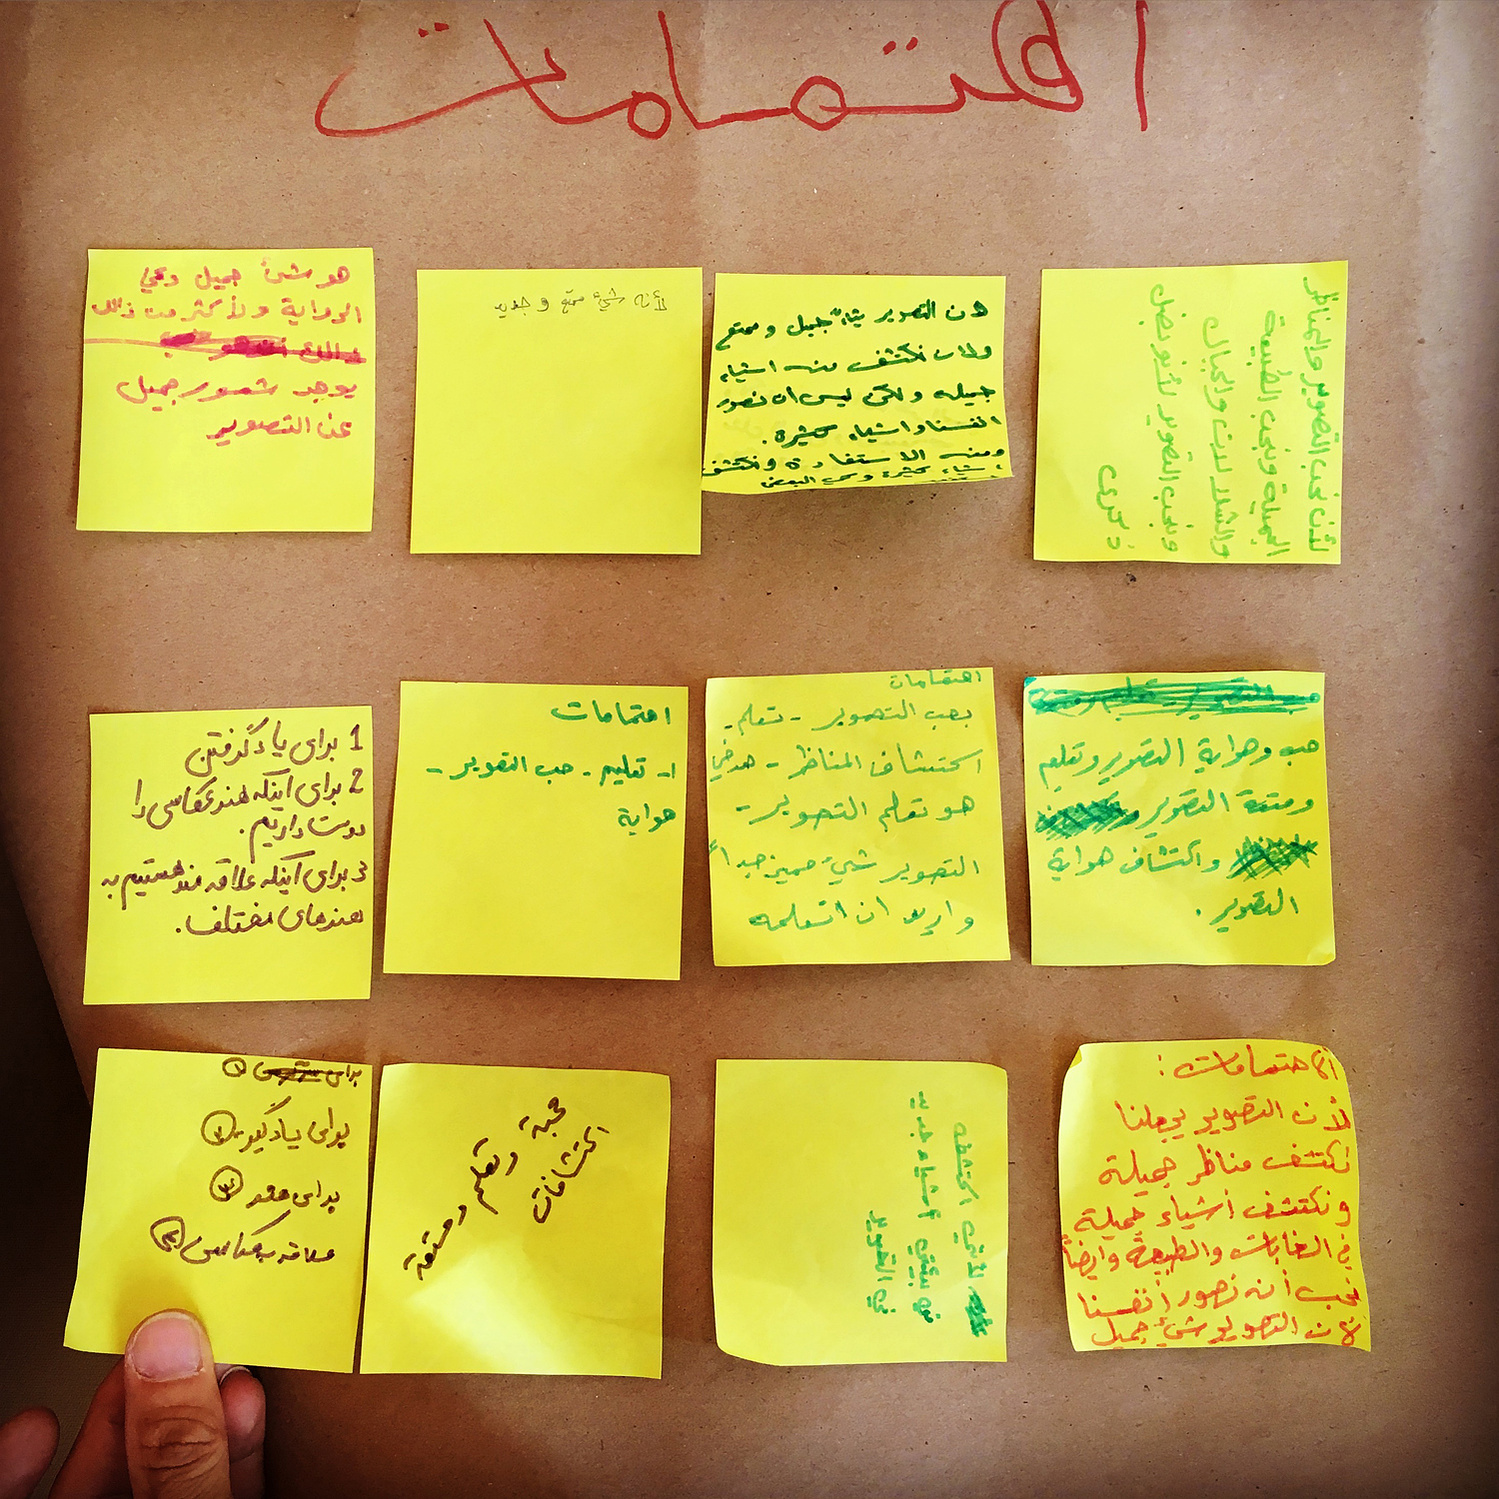 اهتمامات
لأن نحب التصوير والمناظر
الجميلة ونحب الطبيعة
والشلالات والجبال
ونحب التصوير
ذكرى
لان التصوير شيء جميل وممتع
ولان نكتشف منه اشياء
جميله ولكن ليس ان نصور
انفسنا واشياء كثيرة.
ومنه الاستفادة ونكتشف
اشياء كثيرة
لأنه شيء ممتع و جديد
هو شئ جميل
الوراية ولأكثر من ذالك
يوجد شعور جميل
عن التصوير
حب وهواية التصوير وتعلم
ومتعة التصوير
واكتشاف هواية
التصوير.
اهتمامات
بحب التصوير - تعلم -
اكتشاف المناظر - هدفي
هو تعلم التصوير -
التصوير شيء مميز جداً
واريد ان اتعلمه
اهتمامات
١- تعليم - حب التصوير -
هواية
1 برای یادگرفتن
2 برای اینکه هنر عکاسی را
دوست داریم.
3 برای اینکه علاقه مند هستیم به
هنرهای مختلف.
ألاهتمامات:
لأن التصوير يجعلنا
نكتشف مناظر جميلة
ونكتشف أشياء جميلة
في الغابات والطبيعة وايضاً
نحب أن نصور أنفسنا
لأن التصوير شيء جميل
لأنني اكتشفه
أشياء جديد
في التصوير
محبة وتعلم ومتعة
اكتشافات
برای
برای یادگیری
برای هنر
علاقه به عکاسی